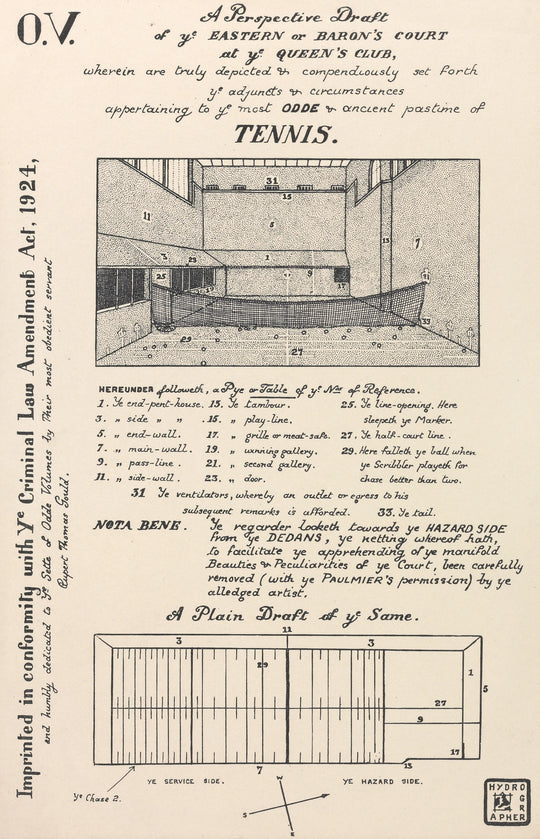 O.V.
A Perspective Draft
of yᵉ EASTERN or BARON'S COURT
at yᵉ QUEEN'S CLUB,
wherein are truly depicted & compendiously set forth
yᵉ adjuncts & circumstances
appertaining to yᵉ most ODDE & ancient pastime of
TENNIS.
31
15
11
5
7
13
3
23
1
25
9
17
33
29
27
HEREUNDER followeth, a Pye or Table of yᵉ Nᵒˢ of Reference.
1. Ye end-pent-house.
3. „ side „ „
5. „ end-wall.
7. „ main-wall.
9. „ pass-line.
11. „ side-wall.
13. Ye tambour.
15. „ play-line.
17. „ grille or meat-safe.
19. „ winning gallery.
21. „ second gallery.
23. „ door.
25. Ye line-opening. Here
sleepeth ye Marker.
27. Ye half-court line.
29. Here falleth ye ball when
ye Scribbler playeth for
chase better than two.
31 Ye ventilators, whereby an outlet or egress to his
subsequent remarks is afforded. 33. Ye tail.
NOTA BENE. Ye regarder looketh towards ye HAZARD SIDE
from ye DEDANS, ye netting whereof hath,
to facilitate ye apprehending of ye manifold
Beauties & Peculiarities of ye Court, been carefully
removed (with ye PAULMIER'S permission) by ye
alledged artist.
A Plain Draft of yᵉ Same.
11
3
3
29
1
5
27
9
17
7
13
YE SERVICE SIDE.
YE HAZARD SIDE.
Ye Chase 2.
W
S
E
HYDRO
GR
APHER
Imprinted in conformity with Yᵉ Criminal Law Amendment Act, 1924,
and humbly dedicated to Yᵉ Sette of Odde Volumes by Their most obedient servant
Rupert Thomas Gould.